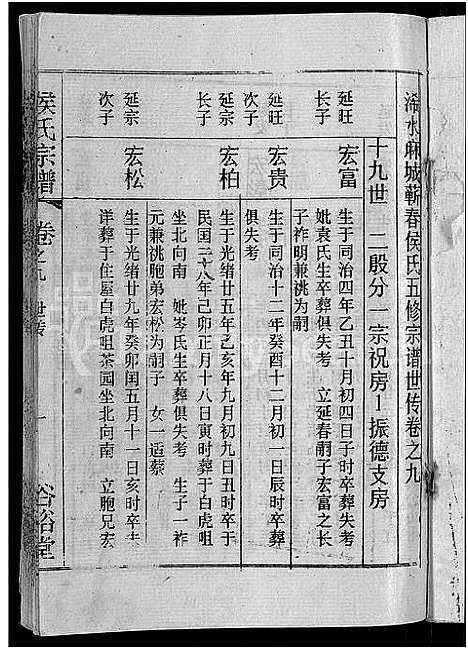 浠水麻城蕲春侯氏五修宗谱世传卷之九
十九世 二殷分一宗祝房—振德支房
延旺
长子
宏富
生于同治四年乙丑十月初四日子时卒葬失考
妣袁氏生卒葬俱失考 立延春嗣子宏富之长
子祚明兼祧为嗣
延旺
次子
宏贵
生于同治十二年癸酉十二月初一日辰时卒葬
俱失考
延宗
长子
宏柏
生于光绪廿五年乙亥年九月初九日丑时卒于
民国二十八年己卯正月十八日寅时葬于白虎咀
坐北向南 妣岑氏生卒葬俱失考 生子一祚
元兼祧胞弟宏松为嗣子 女一适蔡
延宗
次子
宏松
生于光绪廿九年癸卯闰五月十一日亥时卒未
详葬于住屋白虎咀茶园坐北向南 立胞兄宏
侯氏宗谱
卷之九
世传
一